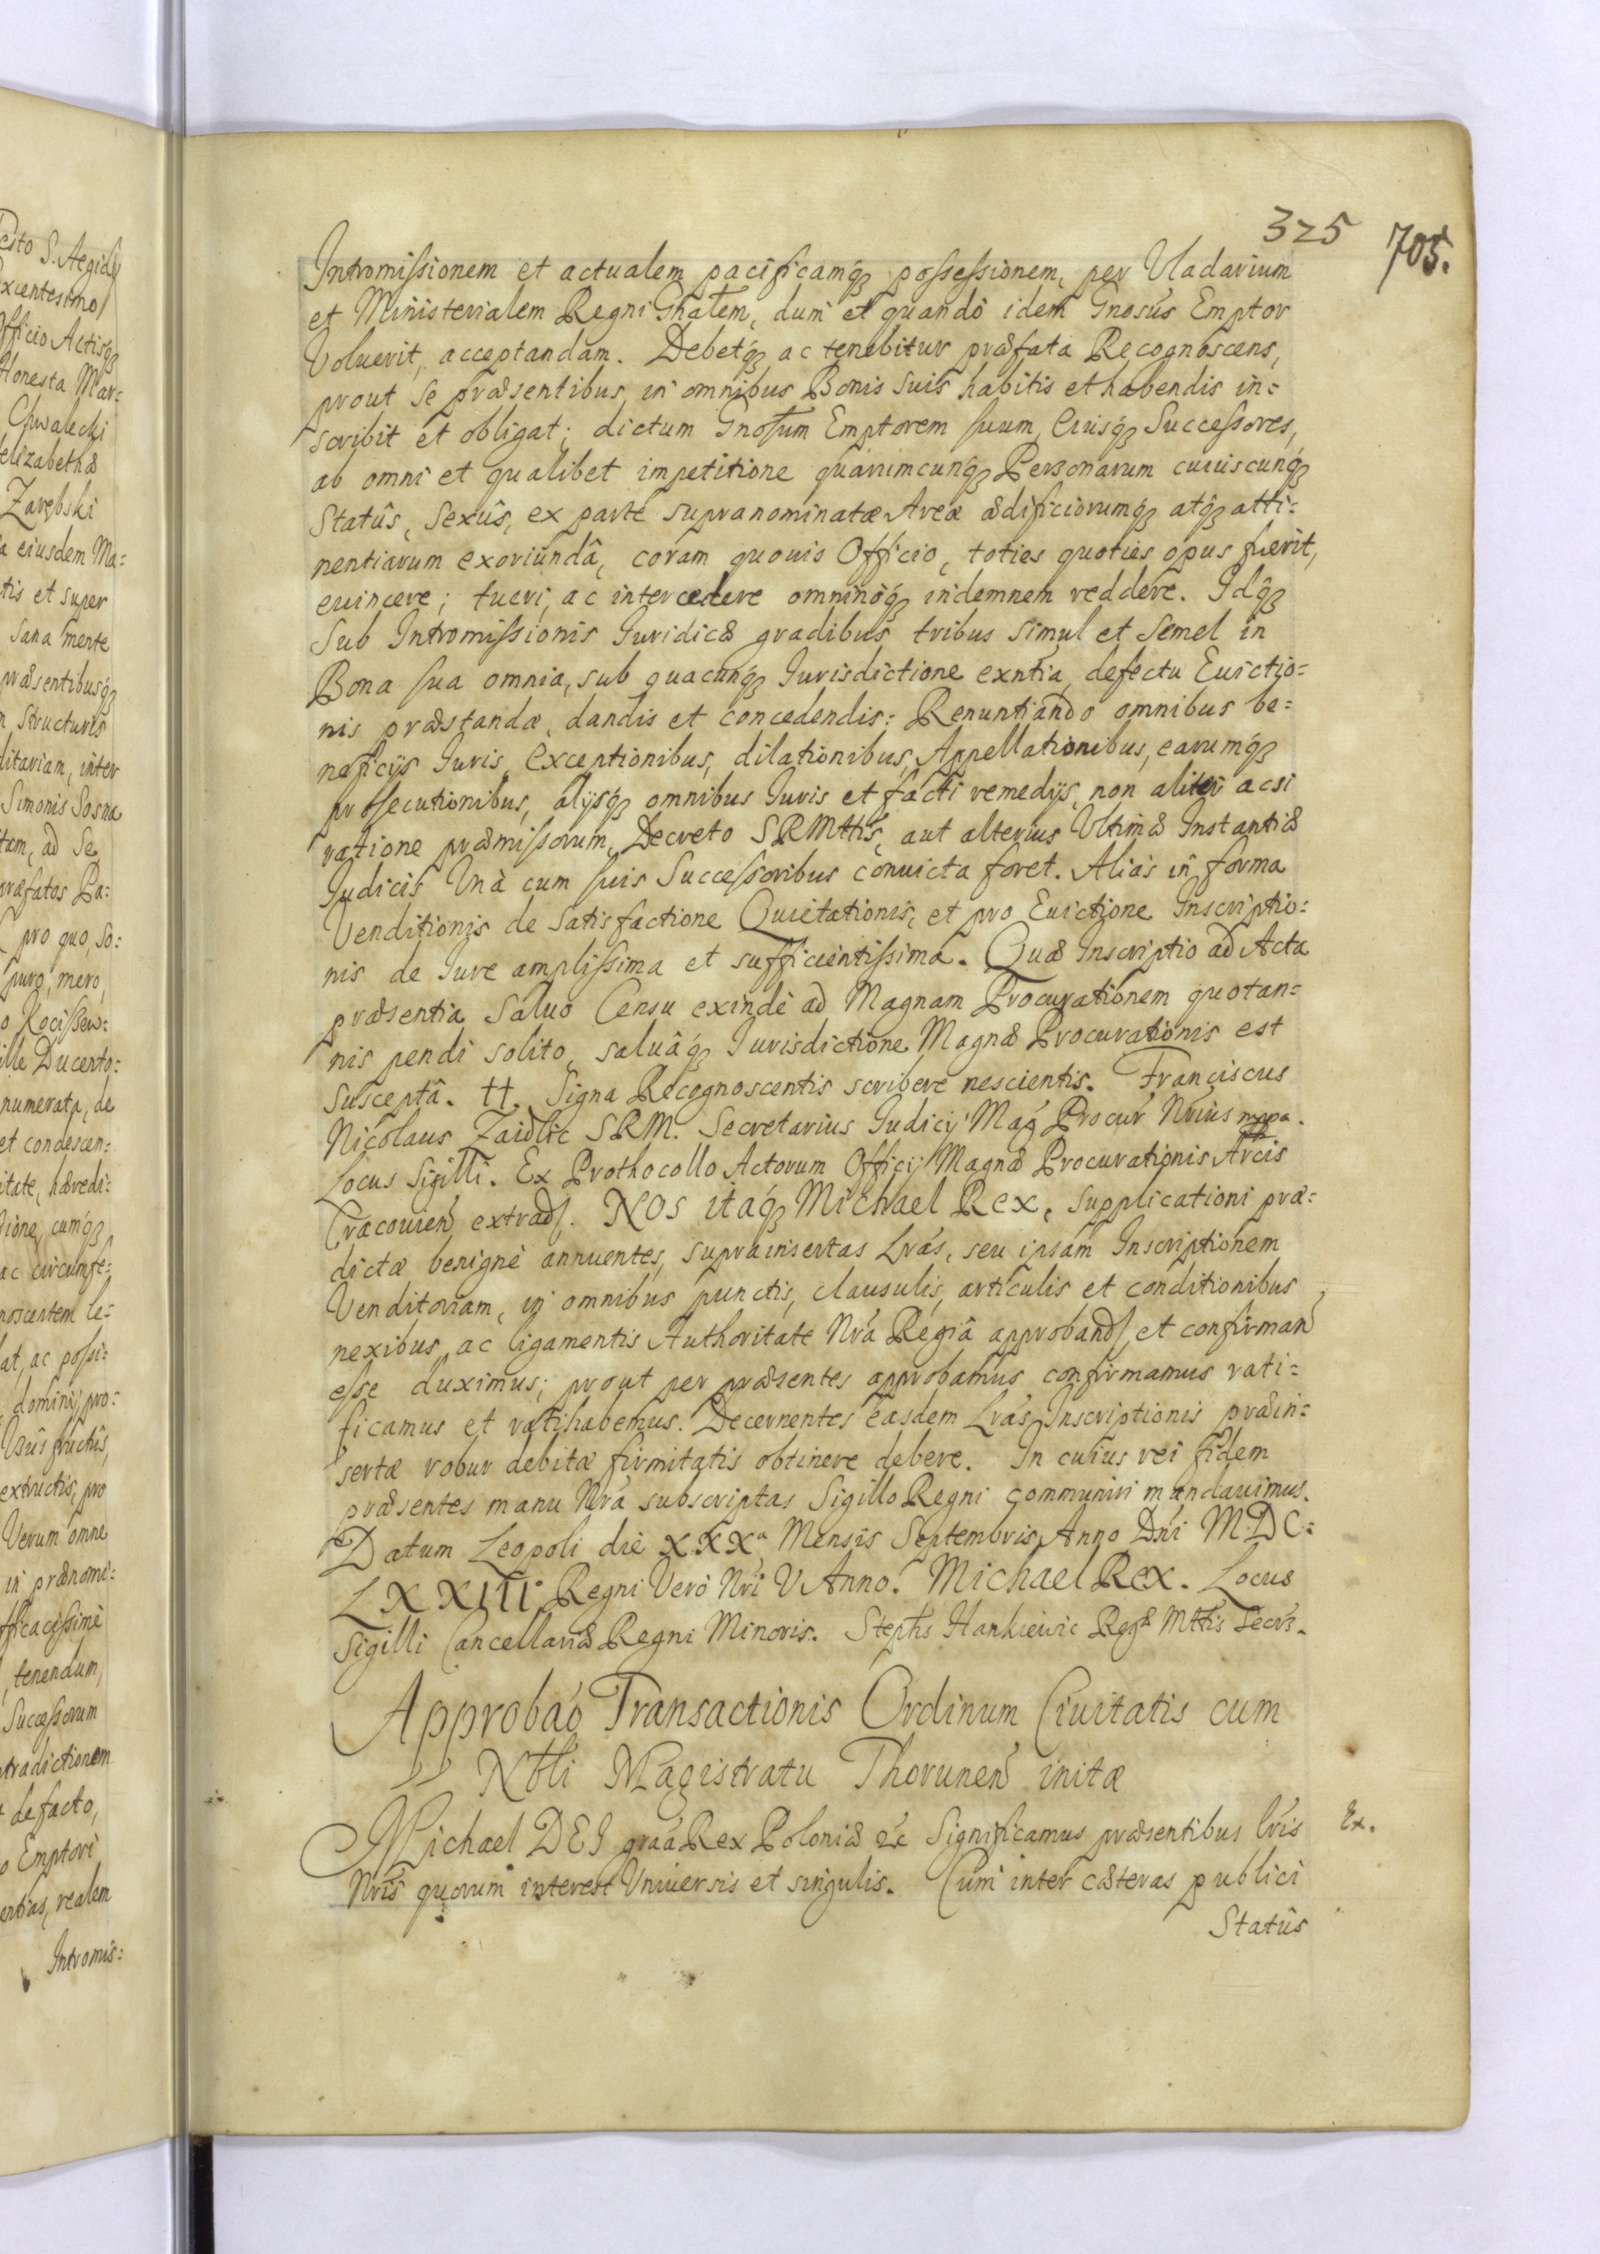 325 705.
Intromissionem et actualem pacificamq; possessionem, per Vladarium
et Ministerialem Regni Gñalem, dum et quando idem Gnosus Emptor
Voluerit, acceptandam. Debetq; ac tenebitur præfata Recognoscens,
prout se præsentibus, in omnibus Bonis suis habitis et habendis in=
scribit et obligat; dictum Gnosum Emptorem suum, Eiusq; Successores,
ab omni et qualibet impetitione quarumcunq; Personarum cuiuscunq;
Statûs, Sexûs, ex parte supranominatæ Areæ ædificiorumq; atq; atti=
nentiarum exoriundâ, coram quouis Officio, toties quoties opus fuerit,
euincere; tueri, ac intercedere omninoq; indemnem reddere. Idq;
Sub Intromissionis Iuridicæ gradibus tribus simul et semel in
Bona sua omnia, sub quacunq; Iurisdictione exntia, defectu Euictio=
nis præstandæ, dandis et concedendis: Renuntiando omnibus be=
neficijs Iuris, Exceptionibus, dilationibus, Appellationibus, earumq;
prosecutionibus, alijsq; omnibus Iuris et facti remedijs, non aliter acsi
ratione præmissorum, Decreto SRMttis, aut alterius Vltimæ Instantiæ
Iudicis Unà cum suis Successoribus conuicta foret. Alias in forma
Venditionis de satisfactione Quietationis, et pro Euictione Inscriptio=
nis de Iure amplissima et sufficientissima. Quæ Inscriptio ad Acta
præsentia saluo Censu exinde ad Magnam Procurationem quotan=
nis pendi solito, saluâq; Iurisdictione Magnæ Procurationis est
susceptâ. ++. Signa Recognoscentis scribere nescientis. Franciscus
Nicolaus Zaidlic SRM. Secretarius Iudicij Mag Procur Nrius mppa.
Locus Sigilli. Ex Prothocollo Actorum Officij Magnæ Procurationis Arcis
Cracouien extrad. NOS itaq; Michael Rex, supplicationi præ=
dictæ benigne annuentes, suprainsertas Lras, seu ipsam Inscriptionem
Venditoriam, in omnibus punctis, clausulis, articulis et conditionibus
nexibus, ac ligamentis Authoritate Nrâ Regiâ approband, et confirmand
esse duximus; prout per præsentes approbamus confirmamus rati=
ficamus et ratihabemus. Decernentes easdem Lras Inscriptionis præin=
sertæ robur debitæ firmitatis obtinere debere. In cuius rei fidem
præsentes manu Nra subscriptas Sigillo Regni communiri mandauimus.
Datum Leopoli die XXXa Mensis Septembris Anno Dni MDC=
LXXIII. Regni Vero Nri V Anno. Michael Rex. Locus
Sigilli Cancellariæ Regni Minoris. Stephs Hankiewic Regæ Mttis Secrs.
Approbao Transactionis Ordinum Ciuitatis cum
Nbli Magistratu Thorunen initæ
Michael DEI graa Rex Poloniæ &c Significamus præsentibus lris Ex.
Nris quorum interest Vniuersis et singulis. Cum inter cæteras publici
Statûs